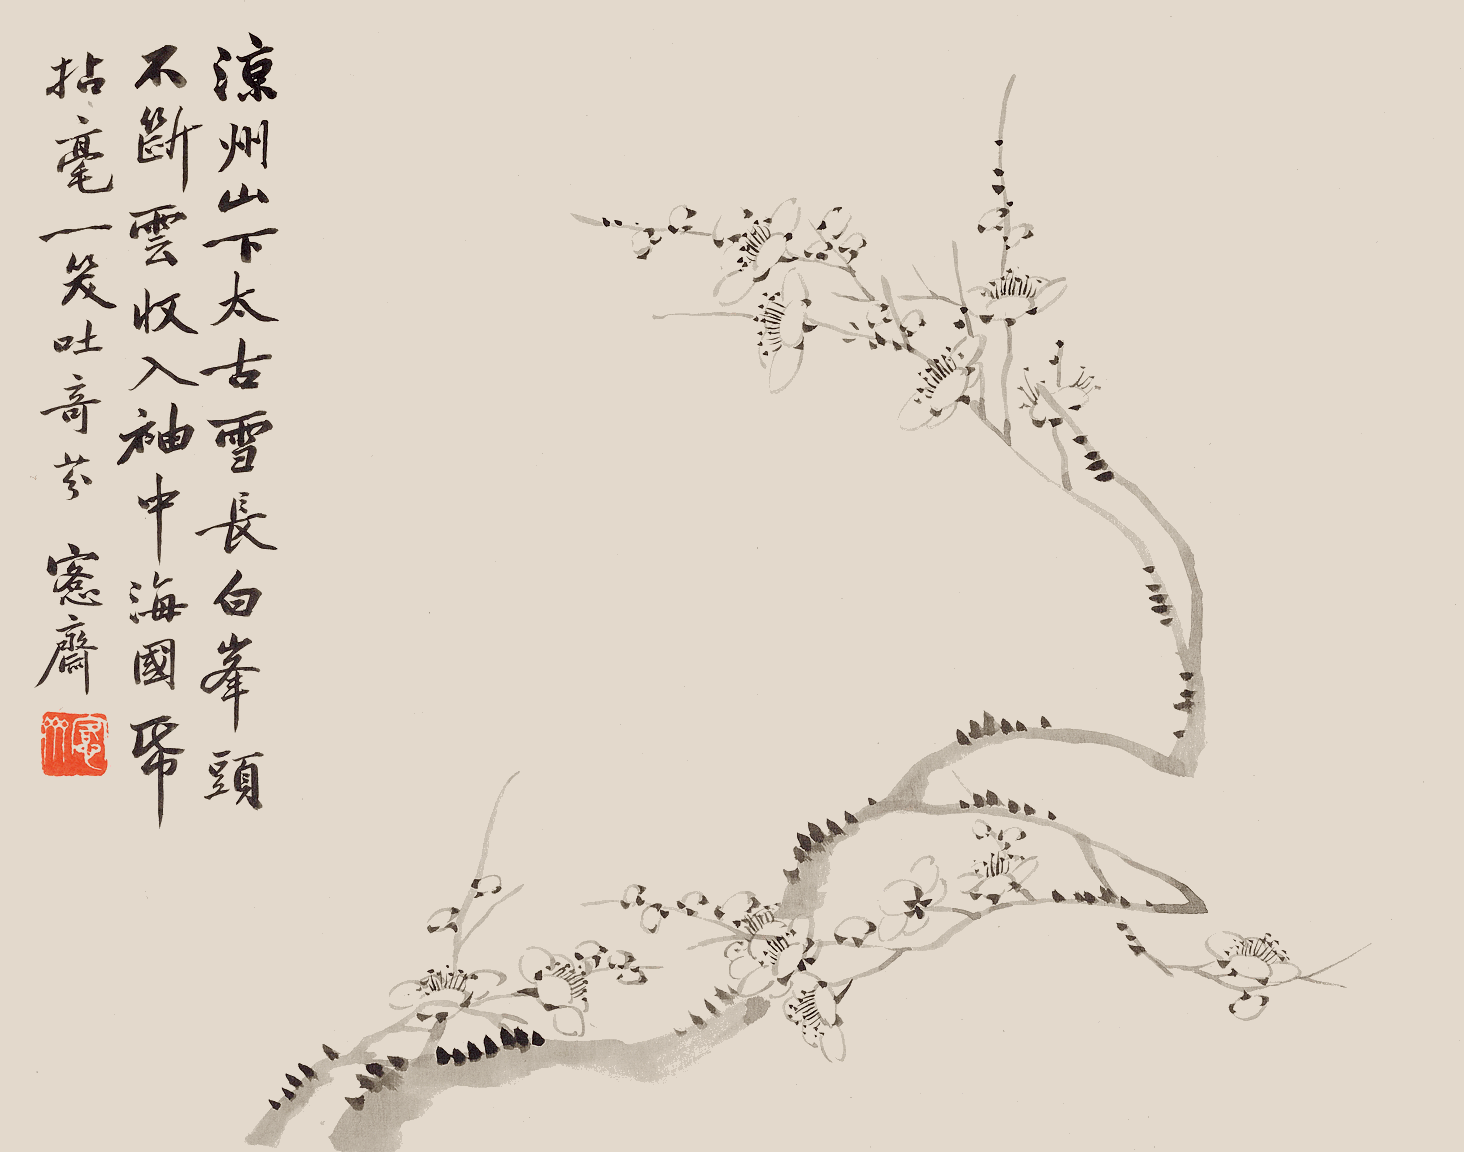 涼州山下太古雪長白峯頭
不斷雲收入袖中海國帋
拈毫一笑吐奇芬 愙齋
愙齋